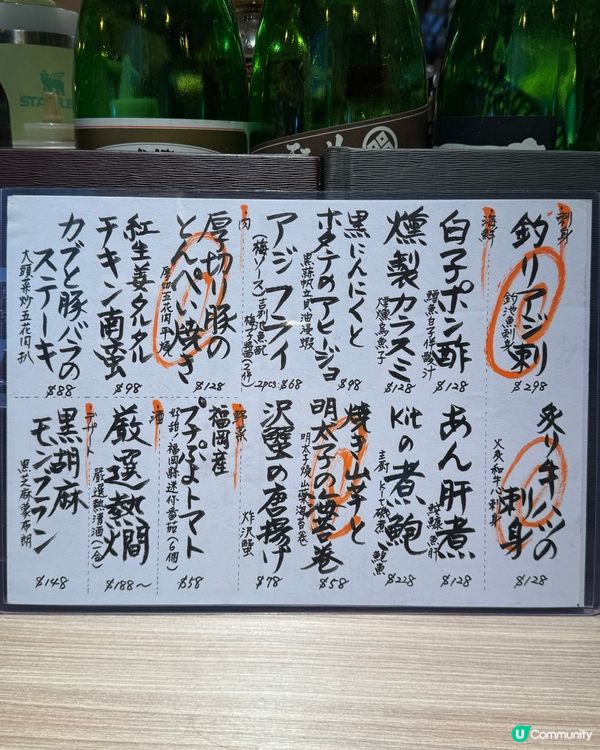 刺身
釣りアジ刺
釣池魚刺身
$298
海鮮
白子ポン酢
鱈魚白子伴酸汁
$128
燻製カラスミ
煙燻烏魚子
$128
黒にんにくと
ホタテのアヒージョ
黑蒜帆立蒜油浸蝦
$98
アジフライ
(梅ソース)
吉列池魚配
梅子醬(2件)
2pcs $68
肉
厚切り豚の
とんぺい焼き
厚切五花肉平燒
$128
紅生姜タルタル
チキン南蛮
$98
カブと豚バラの
ステーキ
大頭菜炒五花肉扒
$88
炙り牛ハツの
刺身
火炙和牛心刺身
$128
あん肝煮
鮟鱇魚肝
$128
Kitの煮鮑
主廚
鮑魚
$228
焼き山芋と
明太子の海苔巻
明太子燒山藥海苔卷
$58
沢蟹の唐揚げ
炸沢蟹
$78
野菜
福岡産
プチぷよトマト
好甜!福岡縣迷你番茄(6個)
$58
酒
厳選熱燗
嚴選熱清酒(一合)
$188~
デザート
黒胡麻
モンブラン
黑芝麻蒙布朗
$148
STANLEY
U Community